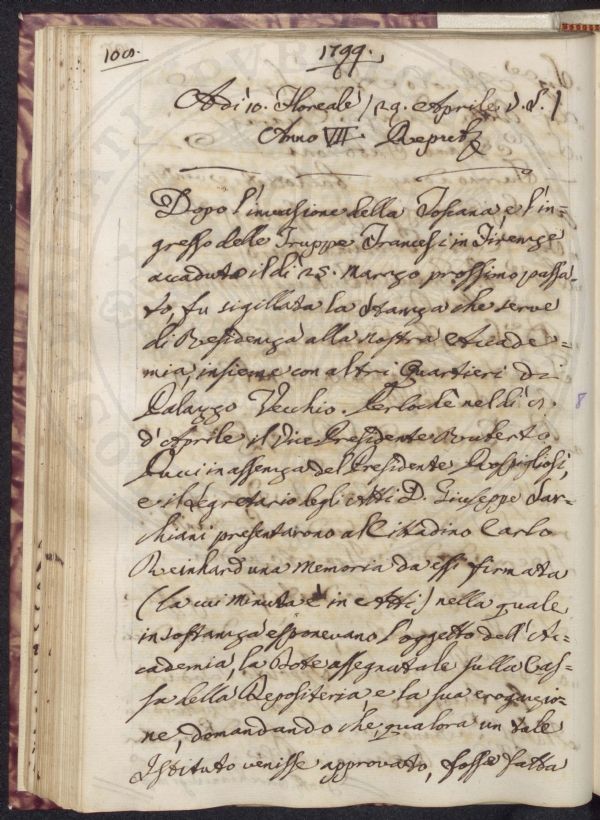 108.
1799.
Adì 10. Floreale / 29. Aprile v. s. /
Anno VII. Repub.
Dopo l'invasione della Toscana, e l'in=
gresso delle Truppe Francesi in Firenze
accaduto il dì 25. Marzo prossimo passa=
to, fu sigillata la stanza che serve
di Residenza alla nostra Accade=
mia, insieme con altri Quartieri di
Palazzo Vecchio. Perlochè nel dì
d'Aprile il Vice Presidente Ruberto
Pucci in assenza del Presidente Rospigliosi,
e il Segretario degli Atti D. Giuseppe Sar=
chiani presentarono al Cittadino Carlo
Reinhard una Memoria da essi firmata
(la cui minuta è in Atti) nella quale
in sostanza esponevano l'oggetto dell'Ac=
cademia, la Dote assegnatale sulla Cas=
sa della Depositeria, e la sua erogazio=
ne, domandando che, qualora un tale
Istituto venisse approvato, fosse fatta
8